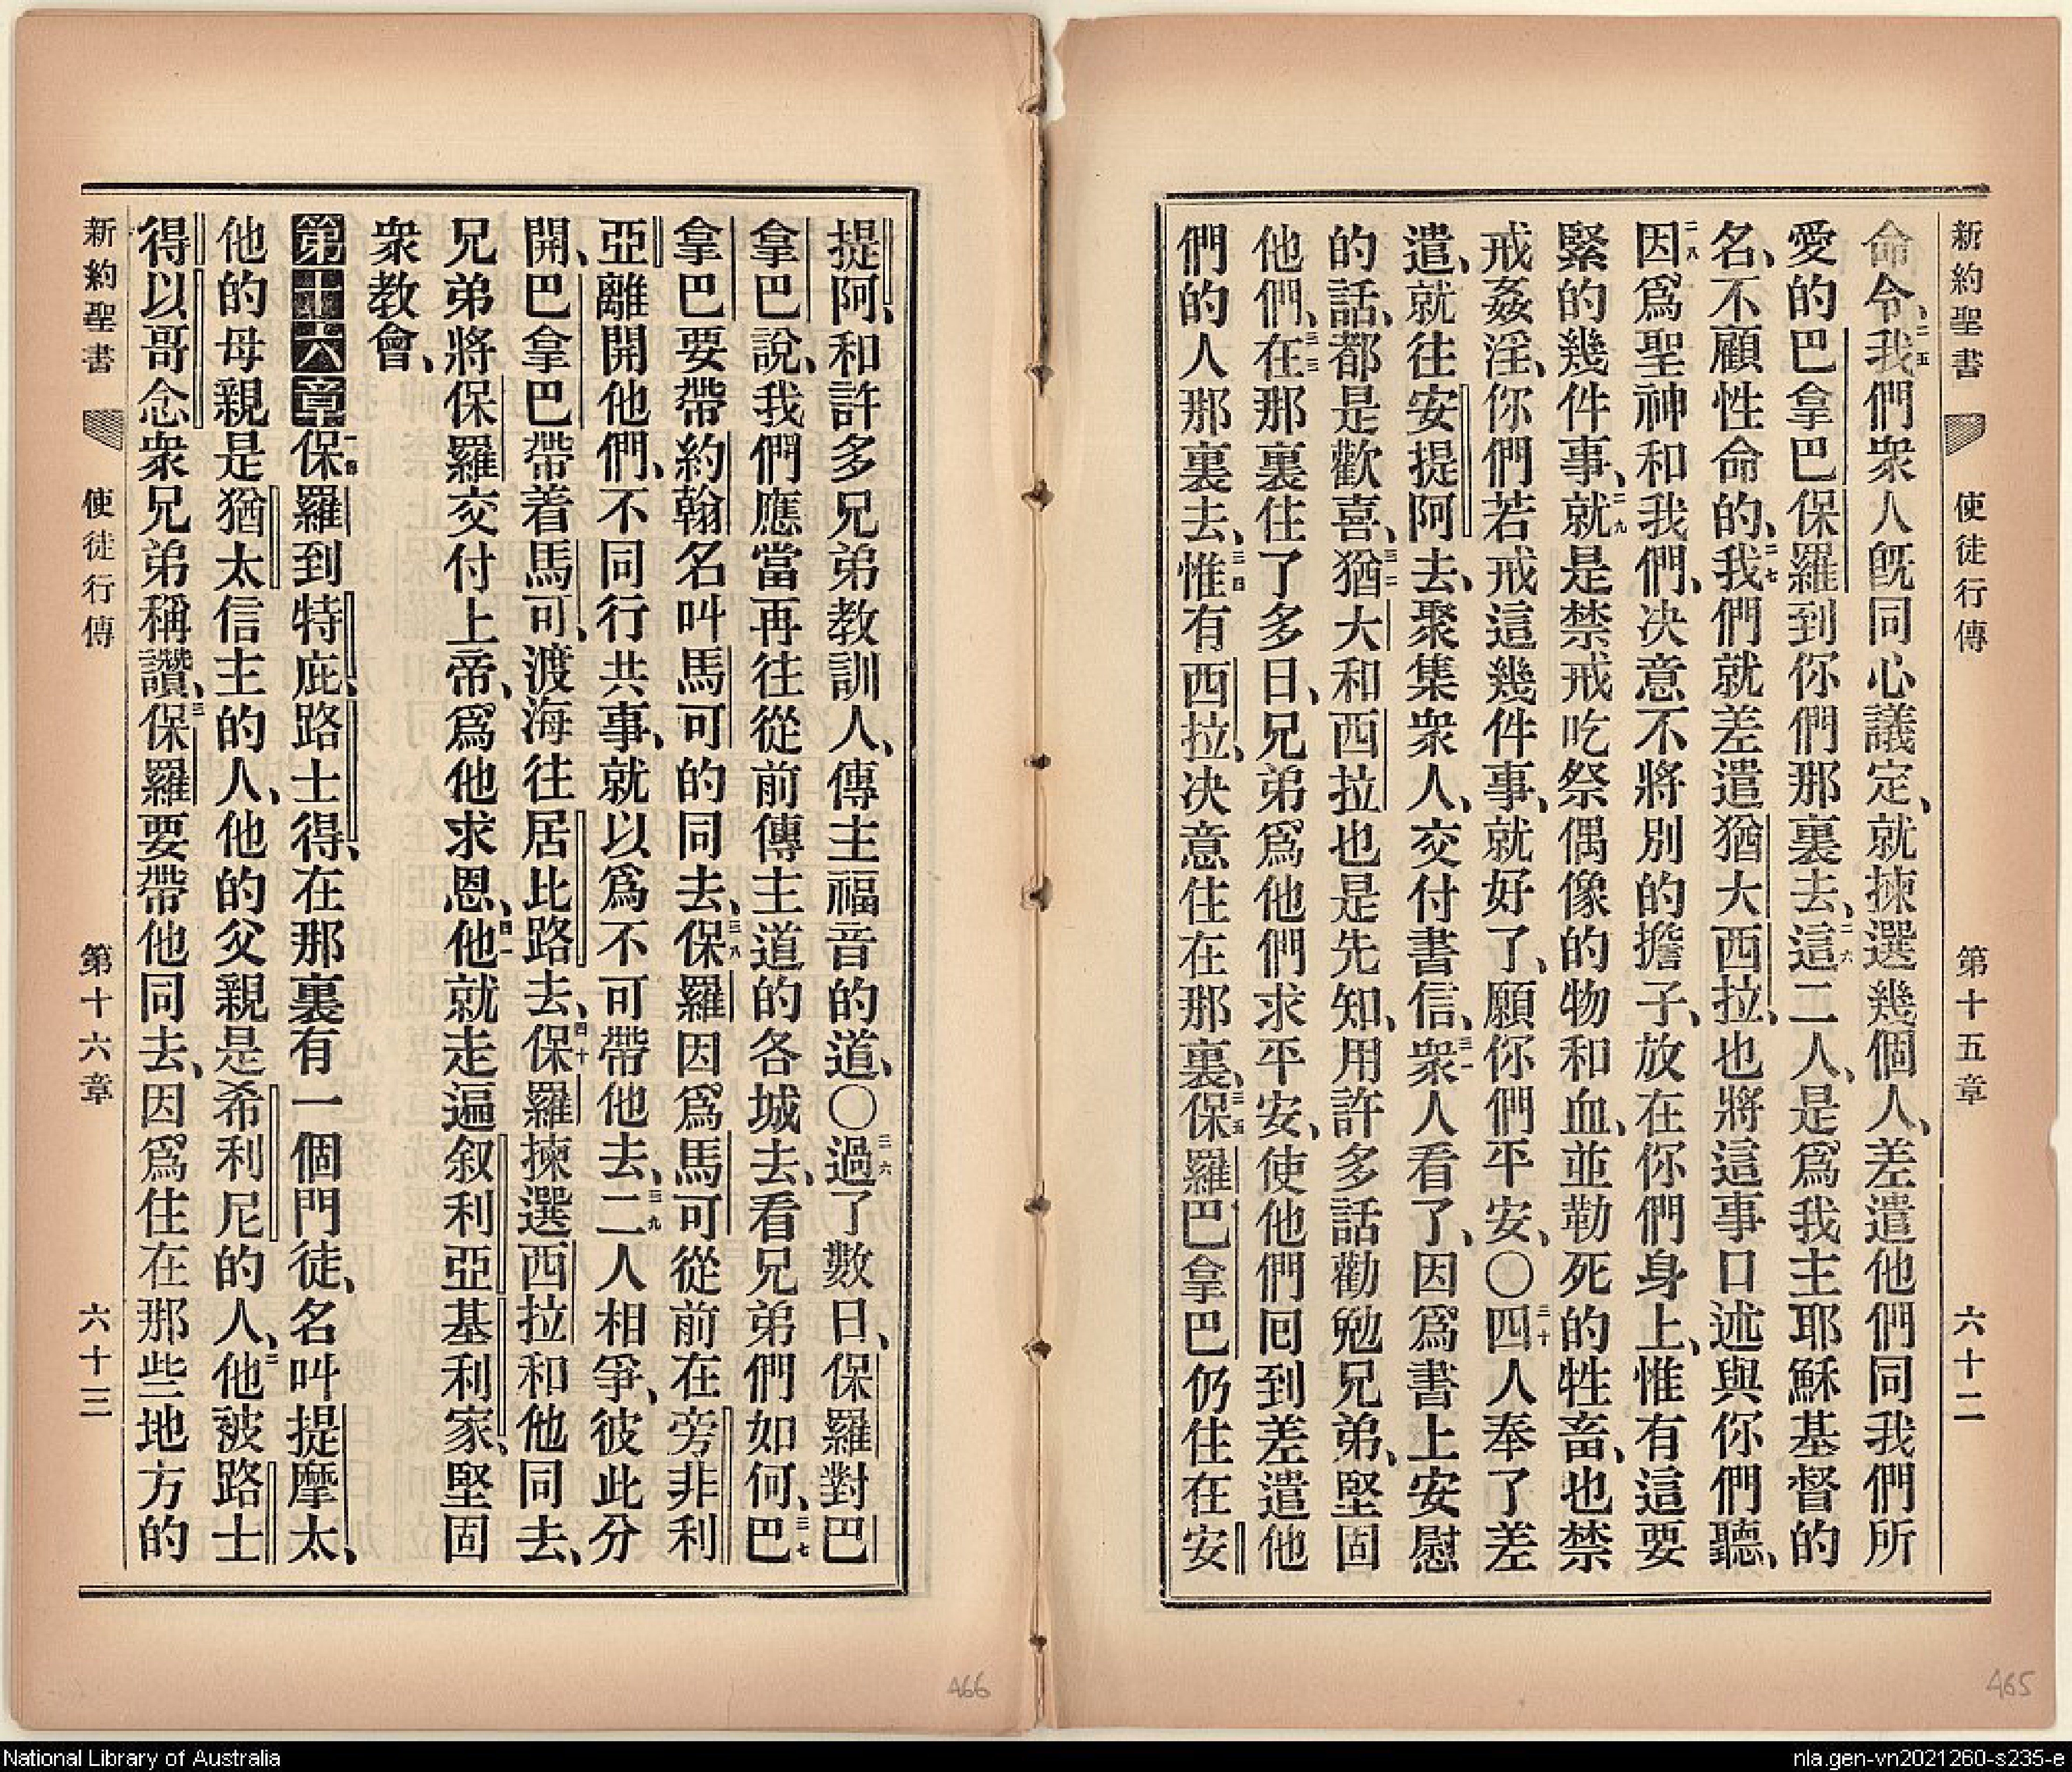 新約聖書 使徒行傳 第十五章 六十二
命令、二五我們衆人旣同心議定、就揀選幾個人、差遣他們同我們所
愛的巴拿巴保羅到你們那裏去、二六這二人、是爲我主耶穌基督的
名、不顧性命的、二七我們就差遣猶大西拉、也將這事口述與你們聽、
二八因爲聖神和我們、決意不將別的擔子、放在你們身上、惟有這要
緊的幾件事、二九就是禁戒吃祭偶像的物和血、並勒死的牲畜、也禁
戒姦淫、你們若戒這幾件事、就好了、願你們平安、〇三十四人奉了差
遣、就往安提阿去、聚集衆人、交付書信、三一衆人看了、因爲書上安慰
的話、都是歡喜、三二猶大和西拉也是先知、用許多話勸勉兄弟、堅固
他們、三三在那裏住了多日、兄弟爲他們求平安、使他們囘到差遣他
們的人那裏去、三四惟有西拉、决意住在那裏、三五保羅巴拿巴仍住在安
提阿、和許多兄弟教訓人、傳主福音的道、〇三六過了數日、保羅對巴
拿巴說、我們應當再往從前傳主道的各城去、看兄弟們如何、三七巴
拿巴要帶約翰名叫馬可的同去、三八保羅因爲馬可從前在旁非利
亞離開他們、不同行共事、就以爲不可帶他去、三九二人相爭、彼此分
開、巴拿巴帶着馬可、渡海往居比路去、四十保羅揀選西拉和他同去、
兄弟將保羅交付上帝、爲他求恩、四一他就走遍叙利亞基利家、堅固
衆教會、
第十六章一保羅到特庇、路士得、在那裏有一個門徒、名叫提摩太、
他的母親是猶太信主的人、他的父親是希利尼的人、二他被路士
得以哥念衆兄弟稱讚、三保羅要帶他同去、因爲住在那些地方的
新約聖書 使徒行傳 第十六章 六十三
466
465
National Library of Australia
nla.gen-vn2021260-s235-e